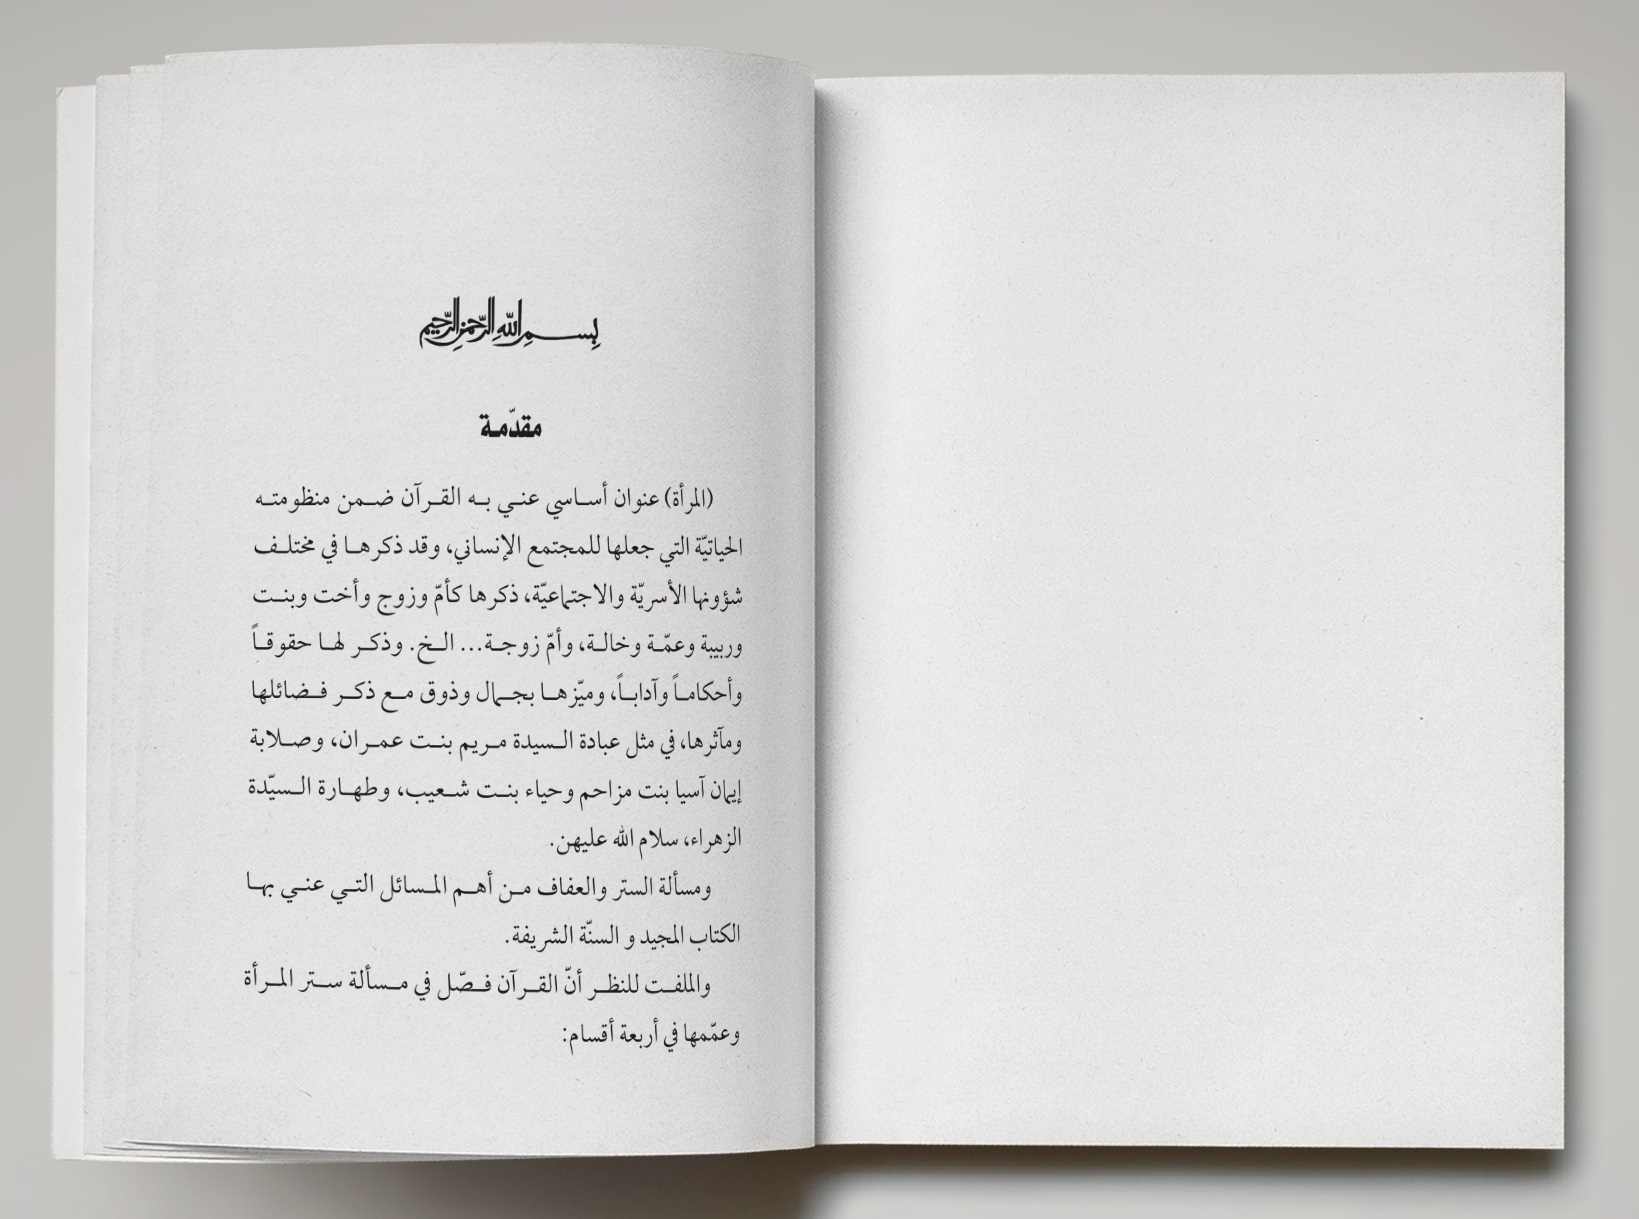 بسم الله الرحمن الرحيم
مقدّمة
(المرأة) عنوان أساسي عني به القرآن ضمن منظومته
الحياتيّة التي جعلها للمجتمع الإنساني، وقد ذكرها في مختلف
شؤونها الأسريّة والاجتماعيّة، ذكرها كأمّ وزوج وأخت وبنت
وربيبة وعمّة وخالة، وأمّ زوجة... الخ. وذكر لها حقوقاً
وأحكاماً وآداباً، وميّزها بجمال وذوق مع ذكر فضائلها
ومآثرها، في مثل عبادة السيدة مريم بنت عمران، وصلابة
إيمان آسيا بنت مزاحم وحياء بنت شعيب، وطهارة السيّدة
الزهراء، سلام الله عليهن.
ومسألة الستر والعفاف من أهم المسائل التي عني بها
الكتاب المجيد و السنّة الشريفة.
والملفت للنظر أنّ القرآن فصّل في مسألة ستر المرأة
وعمّمها في أربعة أقسام: